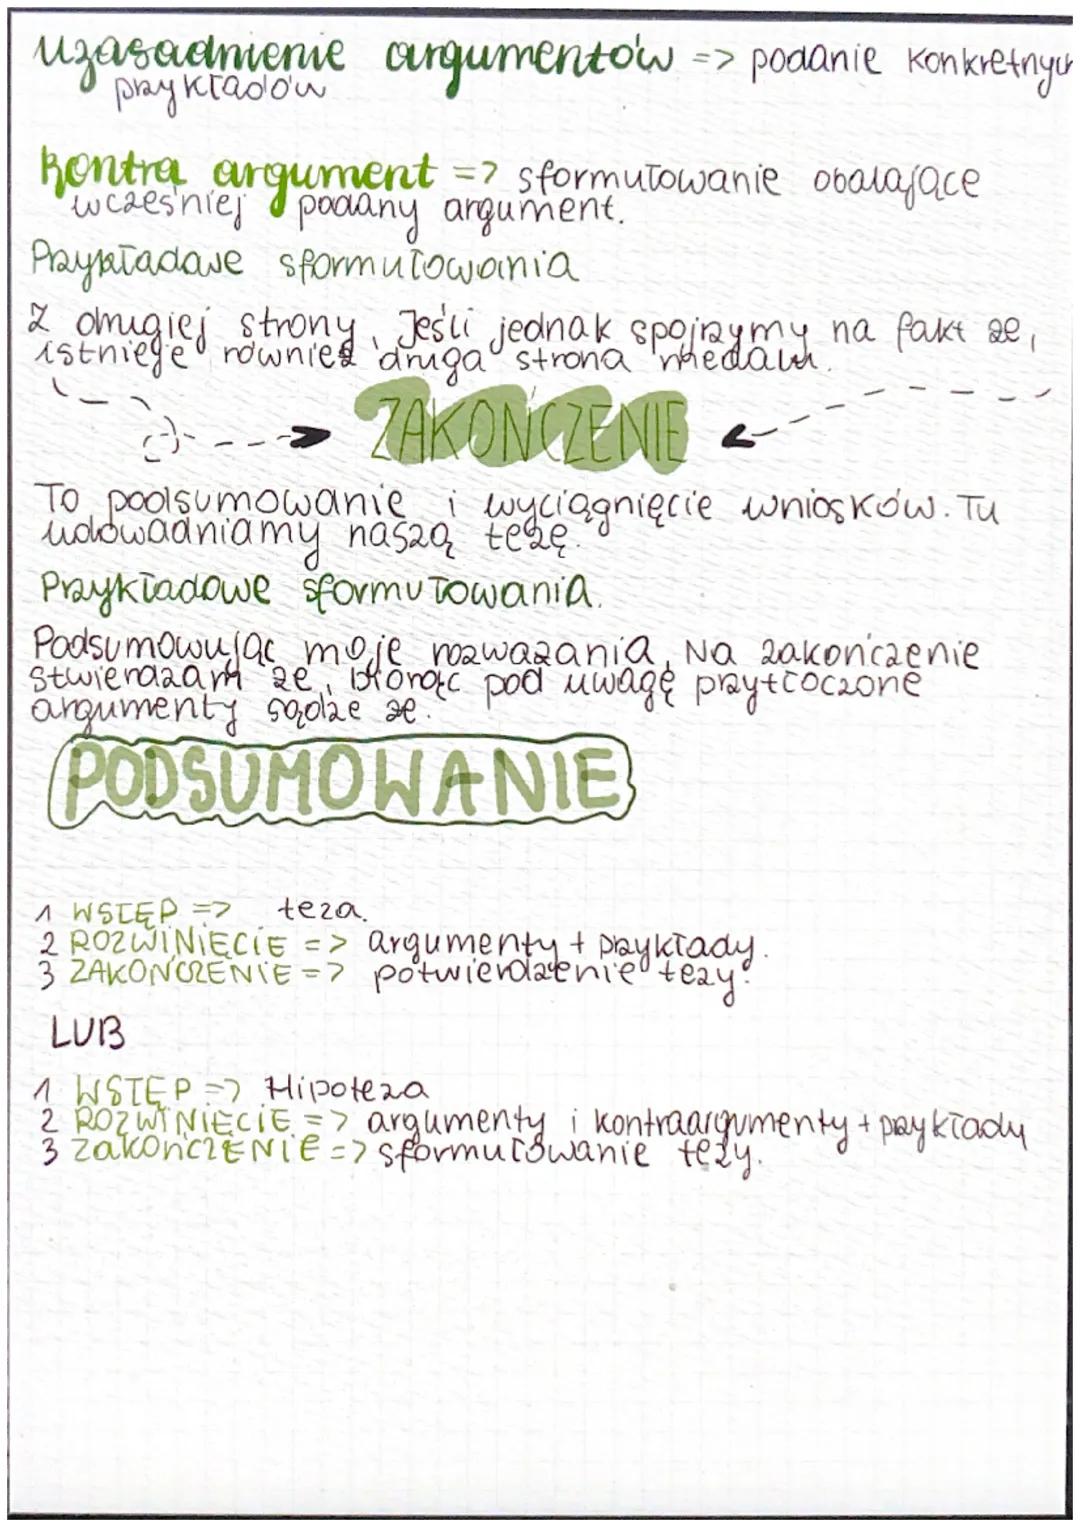 uzasadnienie argumentów => podanie konkretnych
przykładów
kontra argument => sformułowanie obalające
wcześniej podany argument.
Przykładowe sformułowania
Z drugiej strony, Jeśli jednak spojrzymy na fakt że,
istnieje również druga strona medalu.
ZAKOŃCZENIE
To podsumowanie i wyciągnięcie wniosków. Tu
udowadniamy naszą tezę.
Przykładowe sformułowania.
Podsumowując moje rozważania, Na zakończenie
stwierdzam że, biorąc pod uwagę przytoczone
argumenty sądze że.
PODSUMOWANIE
1 WSTĘP => teza.
2 ROZWINIĘCIE => argumenty + przykłady.
3 ZAKOŃCZENIE => potwierdzenie tezy.
LUB
1 WSTĘP => Hipoteza
2 ROZWINIĘCIE => argumenty i kontraargumenty + przykłady
3 ZakońCZENIE => sformułowanie tezy.